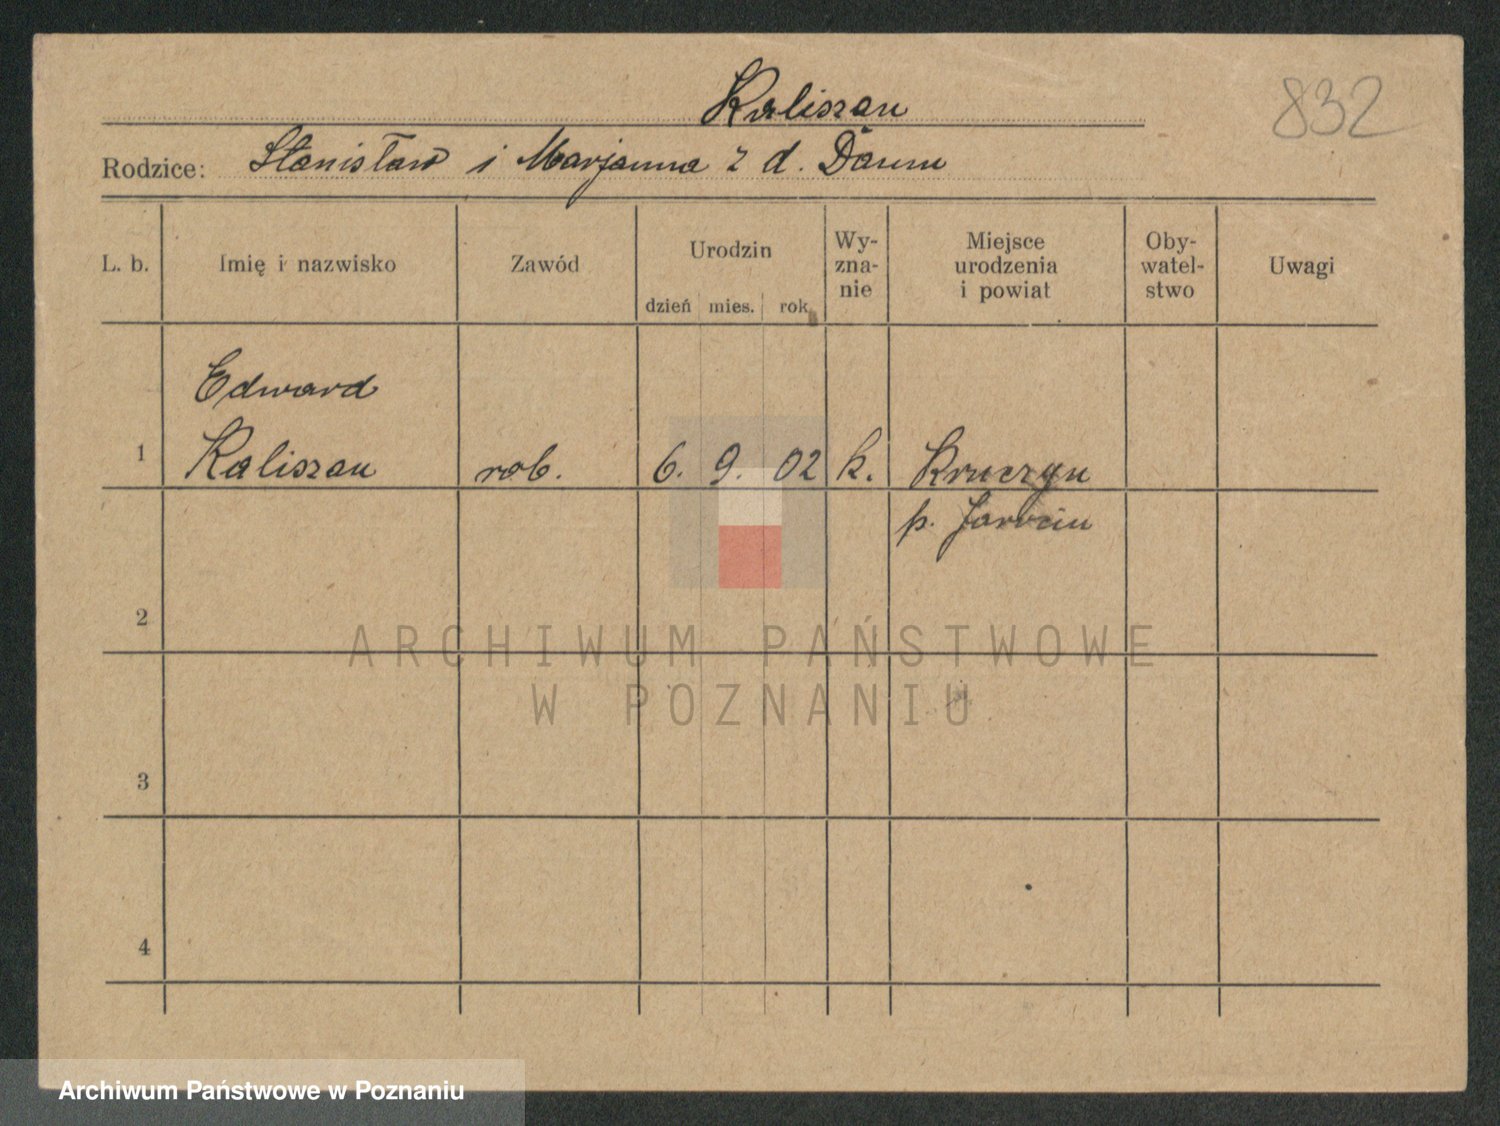 Kaliszan
832
Rodzice: Stanisław i Marjanna z d. Daum
L. b.
Imię i nazwisko
Zawód
Urodzin
dzień mies. rok
Wy-
zna-
nie
Miejsce
urodzenia
i powiat
Oby-
watel-
stwo
Uwagi
Edward
1 Kaliszan rob. 6. 9. 02 k. Kruczyn
p. Jarocin
2
ARCHIWUM PAŃSTWOWE
W POZNANIU
3
4
Archiwum Państwowe w Poznaniu